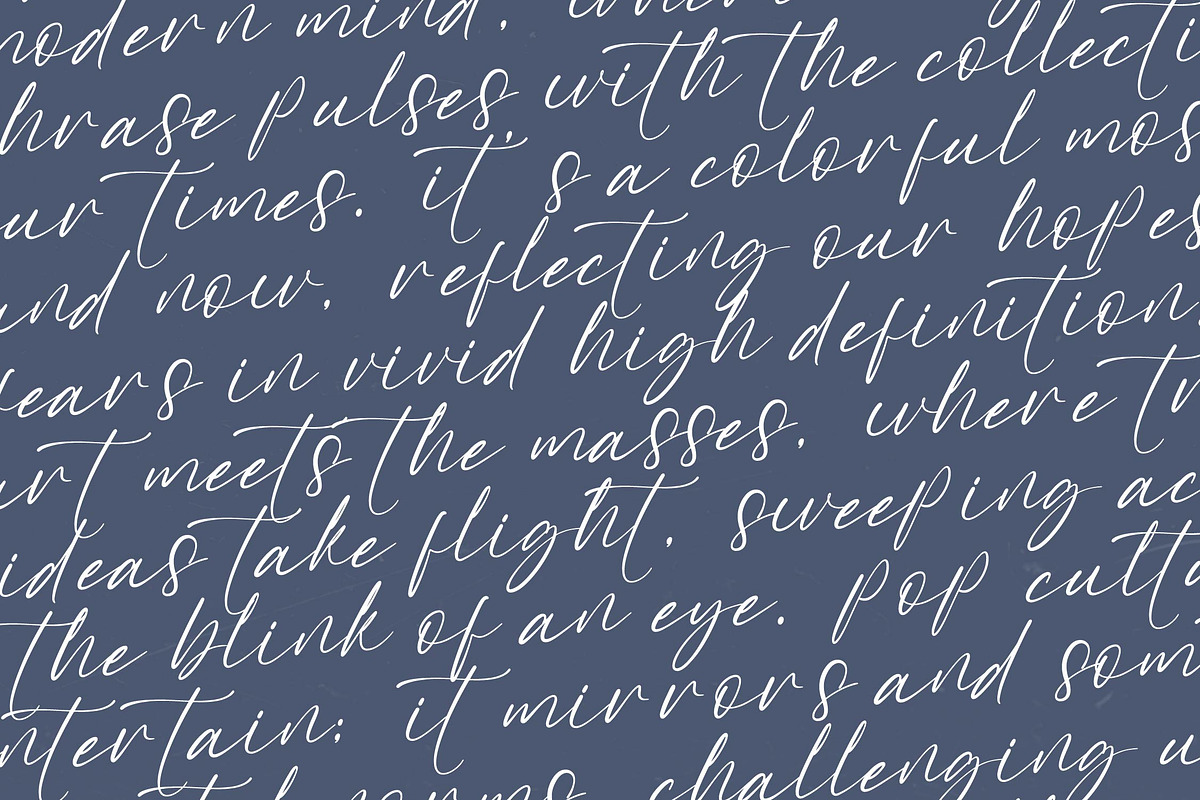 modern mind, where
hrase pulses with the collecti
ur times. it's a colorful mos
and now, reflecting our hopes
fears in vivid high definition.
art meets the masses, where tr
ideas take flight, sweeping ac
the blink of an eye. pop cultu
ntertain; it mirrors and som
norms challenging u